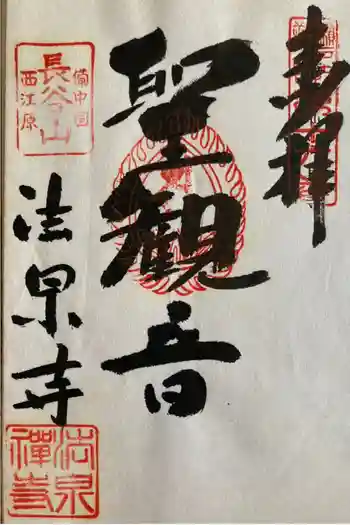 奉拝
聖観音
備中国
長谷山
西江原
法泉寺
法泉
禅寺